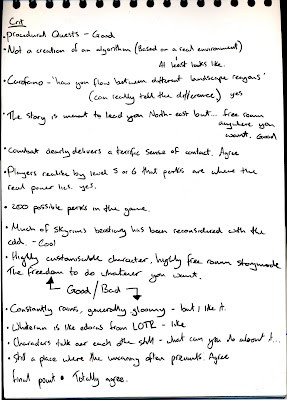 Crit
• procedural Quests - Good
• Not a creation of an algorithm (Based on a real environment)
At least looks like.
• Carofano - 'how you flow between different landscape regions'
(can really tell the difference) yes
• The story is meant to lead you North-east but... free roam
anywhere you
want. Good
• Combat clearly delivers a terrific sense of contact. Agree
• Players realise by level 5 or 6 that perks are where the
real power lies. yes.
• 200 possible perks in the game.
• Much of Skyrims bestiary has been reconsidered with the
add. - Cool
• Highly customisable character, highly free roam storymode
The freedom to do whatever you want.
Good / Bad
• Constantly rains, generally gloomy - but I like it.
• Whiterun is like edoras from LOTR - like
• Characters talk over each other still - what can you do about it...
• Still a place where the uncanny often prevails. Agree
final point • Totally agree.